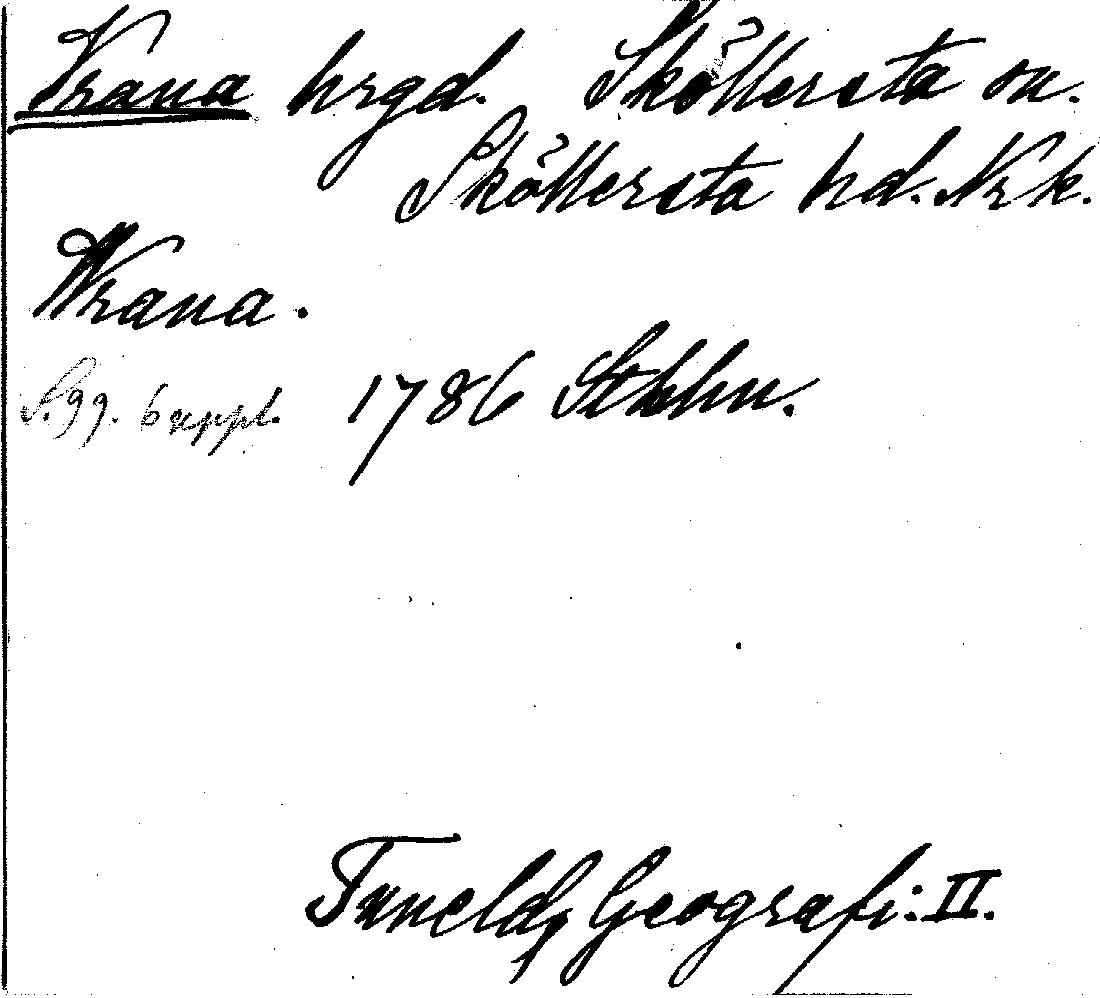 Vrana hrgd. Sköllersta sn.
Sköllersta hd. Nrk.
Wrana.
S. 99. 6 uppl. 1786 Sthlm.
Tunelds Geografi: II.